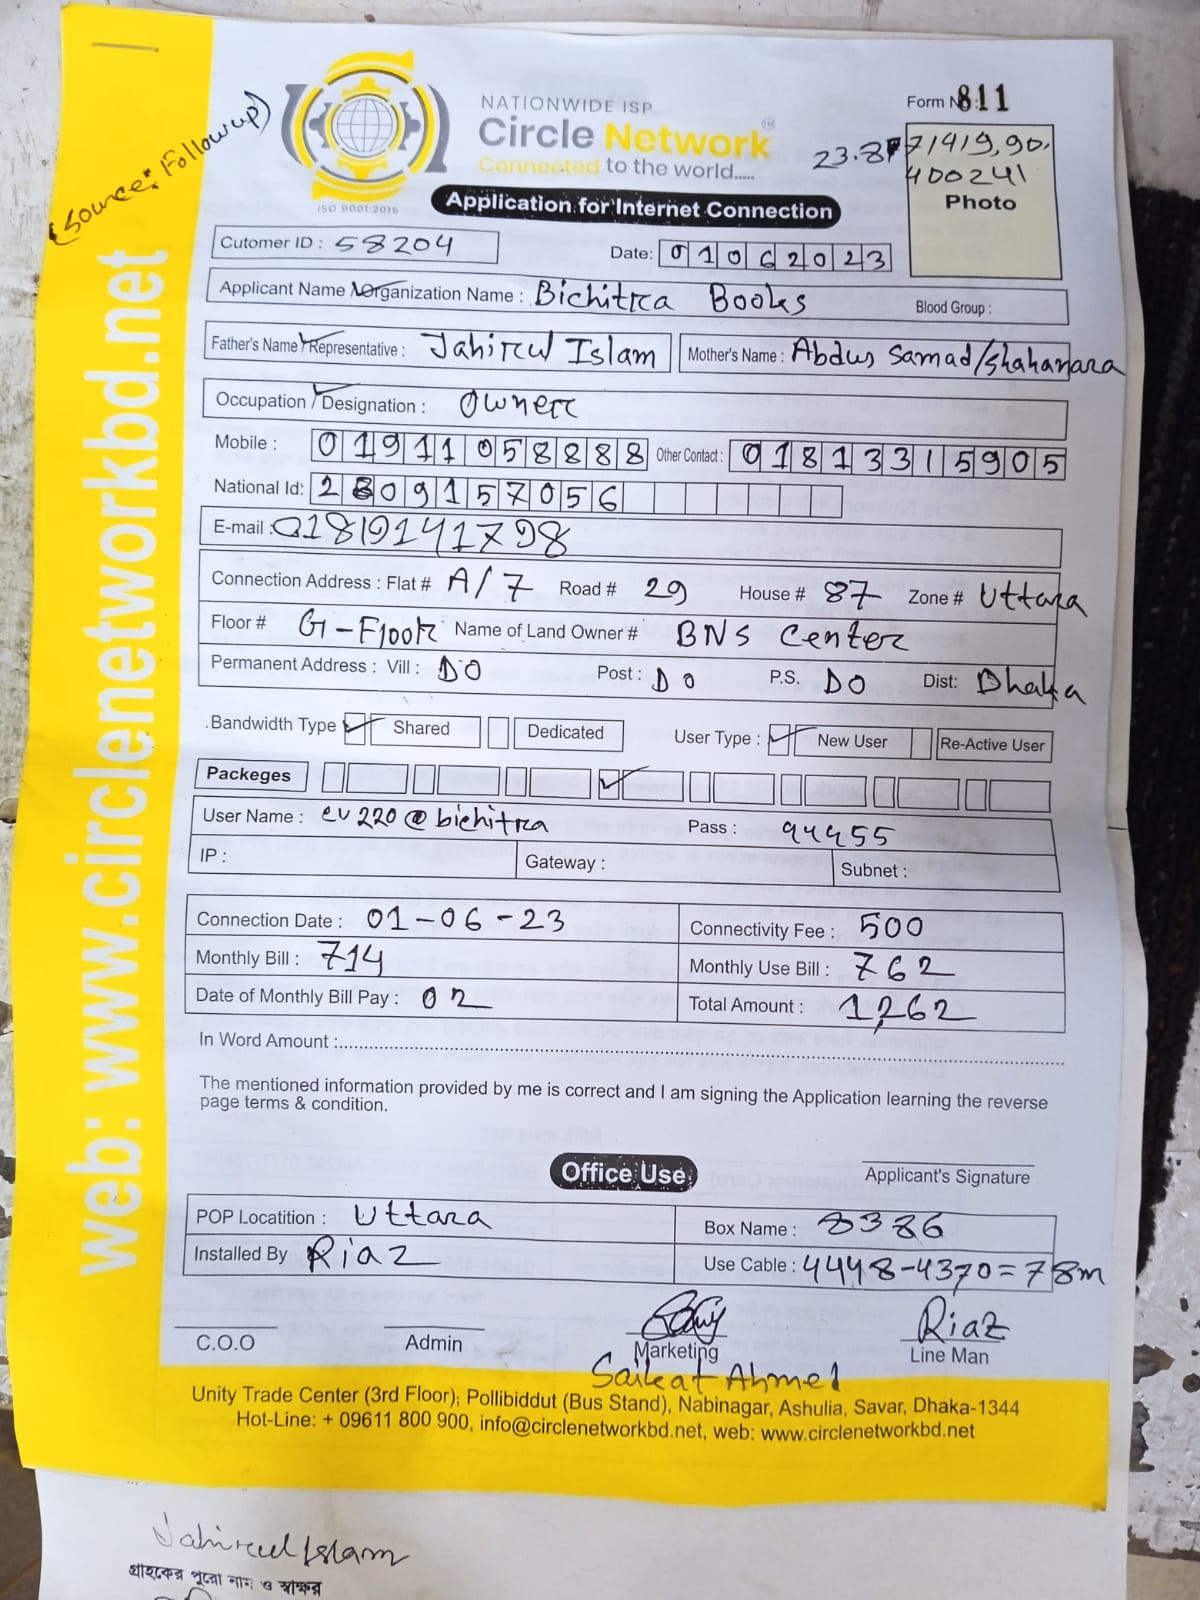 (Source: Follow up)
web: www.circlenetworkbd.net
ISO 9001:2015
NATIONWIDE ISP
Circle Network
Connected to the world.....
Application for Internet Connection
Form No: 811
23.8771419,90.
400241
Photo
Cutomer ID : 58204
Date: 01062023
Applicant Name / Organization Name : Bichitra Books Blood Group :
Father's Name / Representative : Jahirul Islam Mother's Name : Abdus Samad/Shahanara
Occupation / Designation : Owner
Mobile : 01911058888 Other Contact : 01813315905
National Id: 2809157056
E-mail : 01819141798
Connection Address : Flat # A/7 Road # 29 House # 87 Zone # Uttara
Floor # G-Floor Name of Land Owner # BNS Center
Permanent Address : Vill : DO Post : Do P.S. DO Dist: Dhaka
Bandwidth Type Shared Dedicated User Type : New User Re-Active User
Packeges
User Name : ev220@bichitra Pass : 94455
IP : Gateway : Subnet :
Connection Date : 01-06-23 Connectivity Fee : 500
Monthly Bill : 714 Monthly Use Bill : 762
Date of Monthly Bill Pay : 02 Total Amount : 1,262
In Word Amount :
The mentioned information provided by me is correct and I am signing the Application learning the reverse
page terms & condition.
Office Use
Applicant's Signature
POP Locatition : Uttara Box Name : 8386
Installed By Riaz Use Cable : 4448-4370=78m
Riaz
C.O.O Admin Marketing Line Man
Saikat Ahmed
Unity Trade Center (3rd Floor), Pollibiddut (Bus Stand), Nabinagar, Ashulia, Savar, Dhaka-1344
Hot-Line: + 09611 800 900, info@circlenetworkbd.net, web: www.circlenetworkbd.net
Jahirul Islam
গ্রাহকের পুরো নাম ও স্বাক্ষর